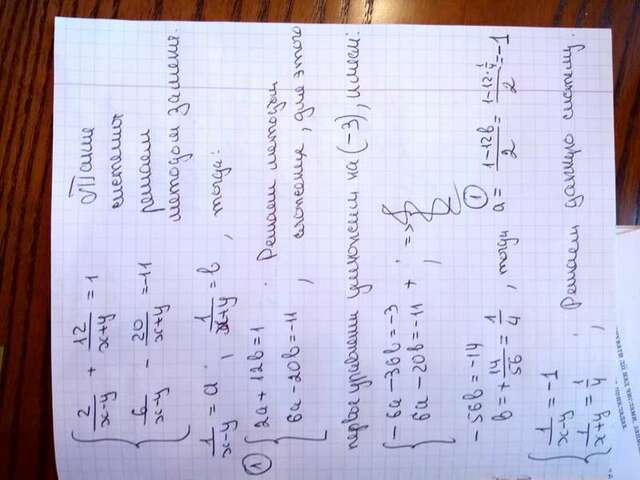 { 2/(x-y) + 12/(x+y) = 1
6/(x-y) - 20/(x+y) = -11
Такие
системы
решаем
методом замены.
1/(x-y) = a ; 1/(x+y) = b , тогда:
① { 2a + 12b = 1
6a - 20b = -11 ,
. Решаем методом
сложения, для этого
первое уравнение умножим на (-3), имеем:
{ -6a - 36b = -3
6a - 20b = -11 + ; =>
-56b = -14
b = + 14/56 = 1/4 , тогда ① a = (1-12b)/2 = (1-12·1/4)/2 = -1
{ 1/(x-y) = -1
1/(x+y) = 1/4 , . Решаем данную систему.